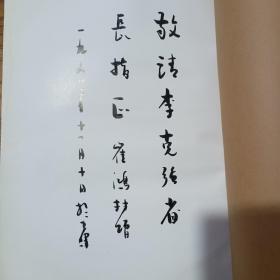 敬请李克强省
長指正 崔鴻
一九九 年十一月十日於